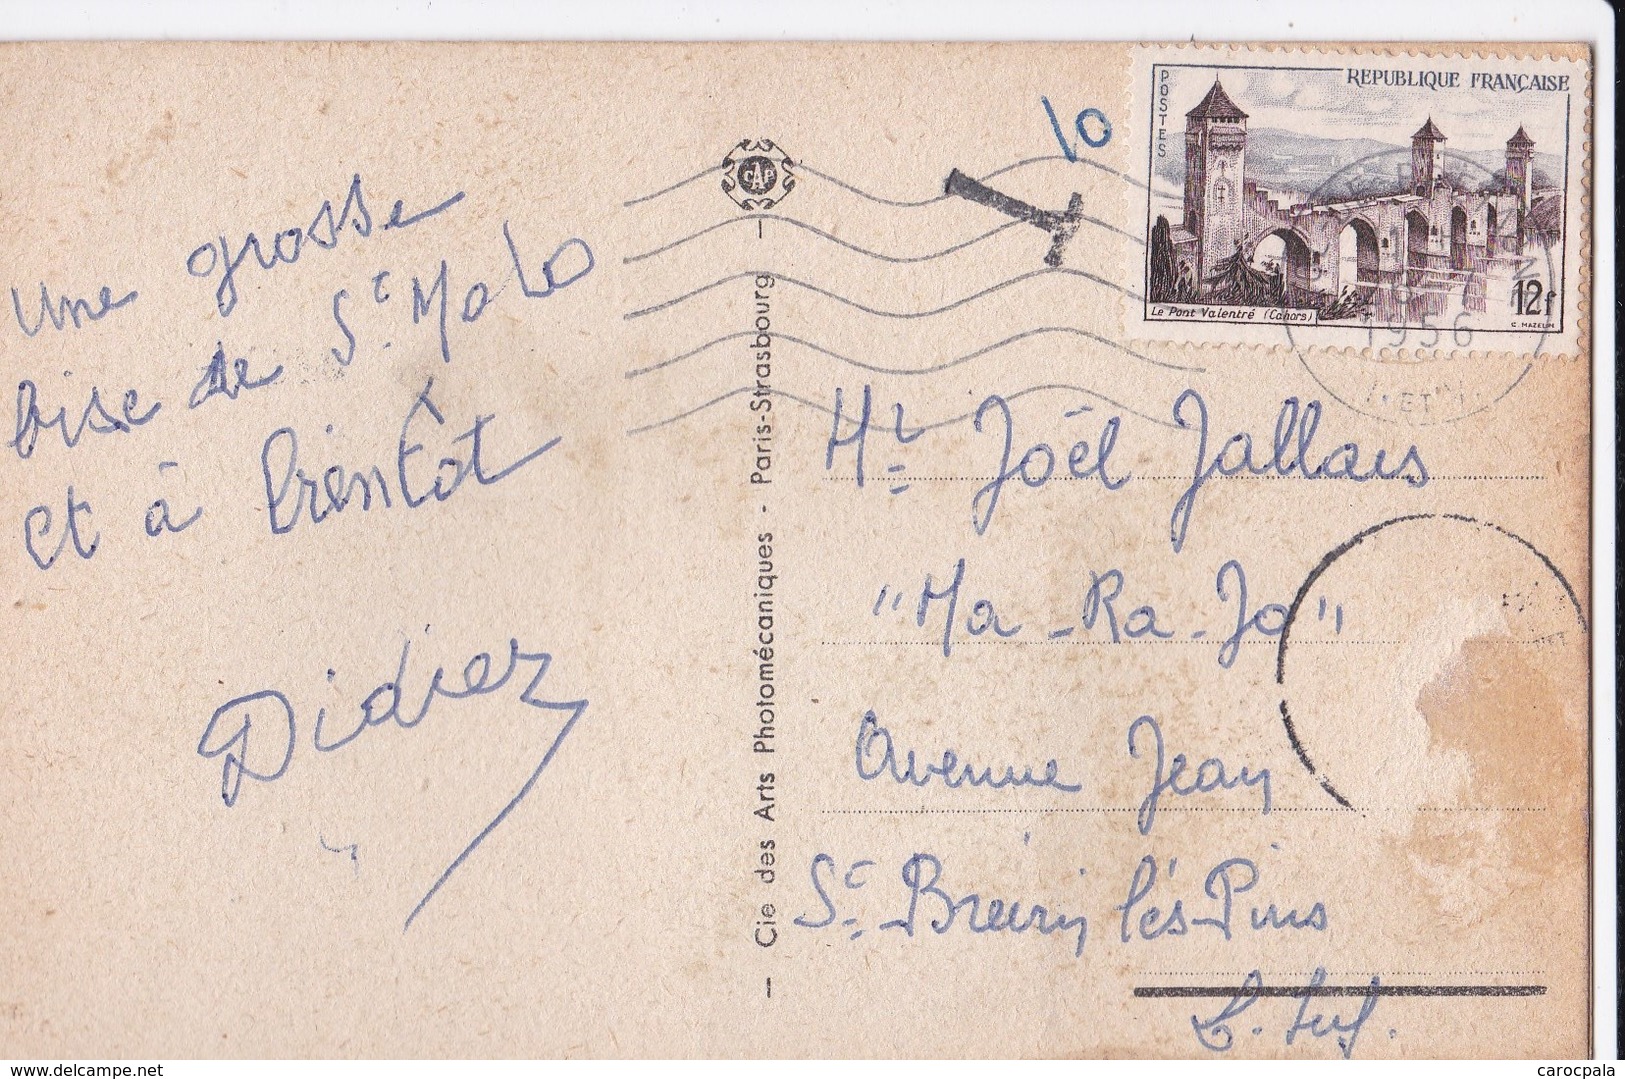 Une grosse
bise de St Malo
et à bientôt
Didier
CAP
— Cie des Arts Photomécaniques - Paris-Strasbourg —
10
T
POSTES
REPUBLIQUE FRANÇAISE
Le Pont Valentré (Cahors)
12f
C. MAZELIN
1956
Mr Joël Jallais
"Ma-Ra-Jo"
Avenue Jean
St Brévin les Pins
L. Inf.
delcampe.net
carocpala